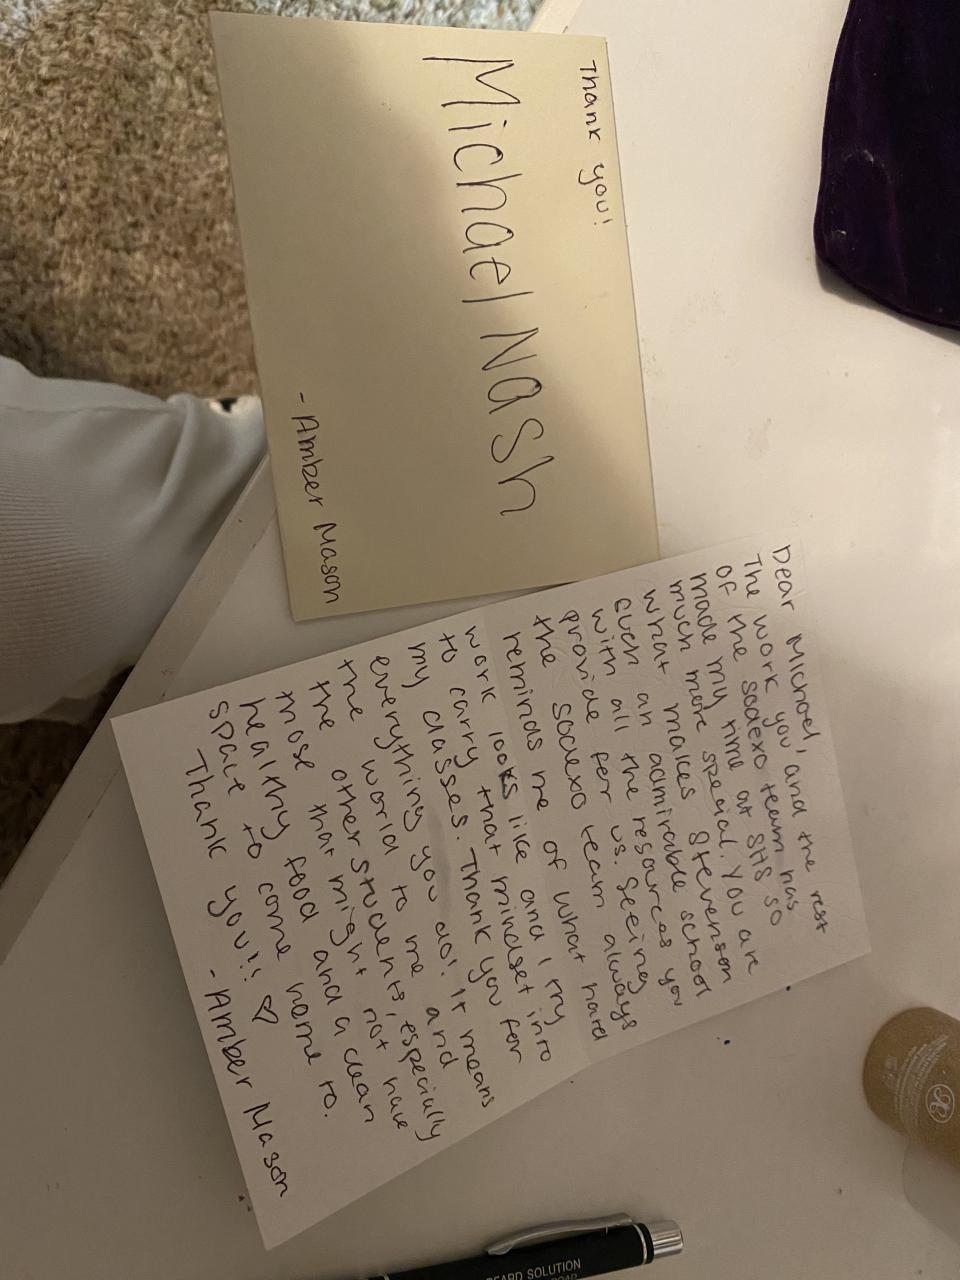 Thank you!
Michael Nash
- Amber Mason
Dear Michael,
The work you and the rest
of the sodexo team has
made my time at SHS so
much more special. You are
what makes Stevenson
such an admirable school
with all the resources you
provide for us. Seeing
the sodexo team always
reminds me of what hard
work looks like and I try
to carry that mindset into
my classes. Thank you for
everything you do! It means
the world to me and
the other students, especially
those that might not have
healthy food and a clean
space to come home to.
Thank you!! ♡
- Amber Mason
BEARD SOLUTION